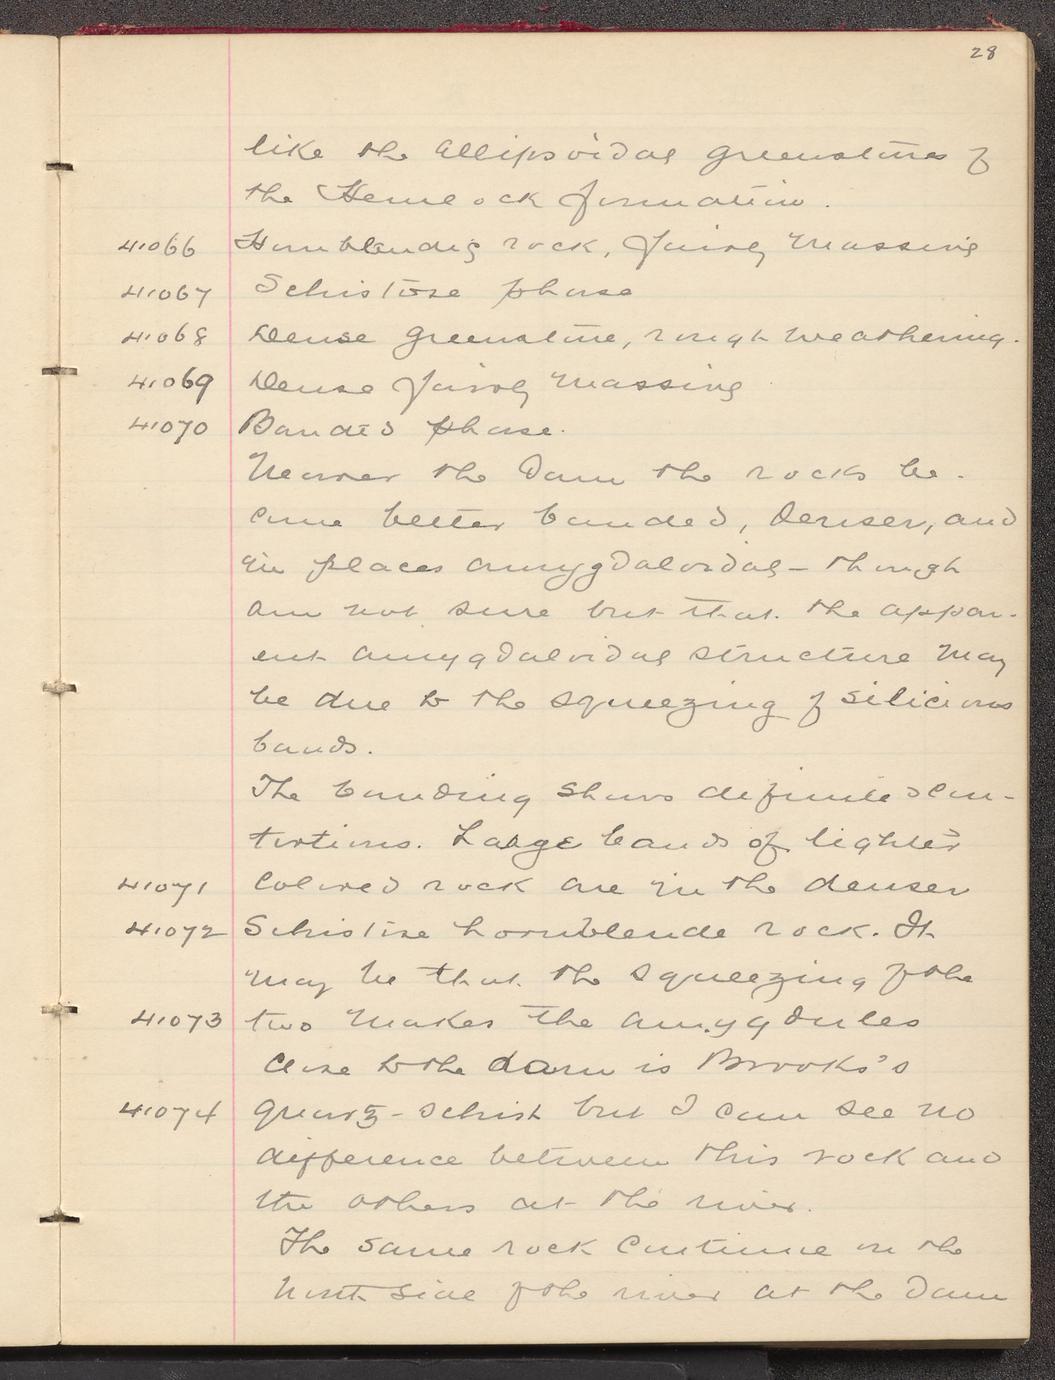 28
like the Ellipsoidal greenstones of
the Hemlock formation.
41066 Hornblendic rock, fairly massive
41067 Schistose phase
41068 Dense greenstone, rough weathering.
41069 Dense fairly massive
41070 Banded phase.
Nearer the dam the rocks be-
come better banded, denser, and
in places amygdaloidal - though
am not sure but that the appar-
ent amygdaloidal structure may
be due to the squeezing of silicious
bands.
The banding shows definite con-
tortions. Large bands of lighter
41071 colored rock are in the denser
41072 Schistose hornblende rock. It
may be that the squeezing of the
41073 two makes the amygdules
Close to the dam is Brooks's
41074 quartz-schist but I can see no
difference between this rock and
the others at the river.
The same rock continue on the
north side of the river at the dam